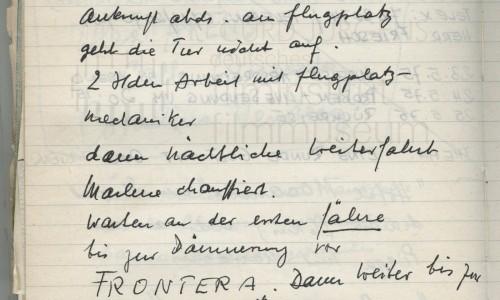 Ankunft abds. am Flugplatz
geht die Tür nicht auf.
2 Stden Arbeit mit Flugplatz-
mechaniker
dann nächtliche Weiterfahrt
Marlene chauffiert.
Warten an der ersten Fähre
bis zur Dämmerung vor
FRONTERA. Dann weiter bis zur